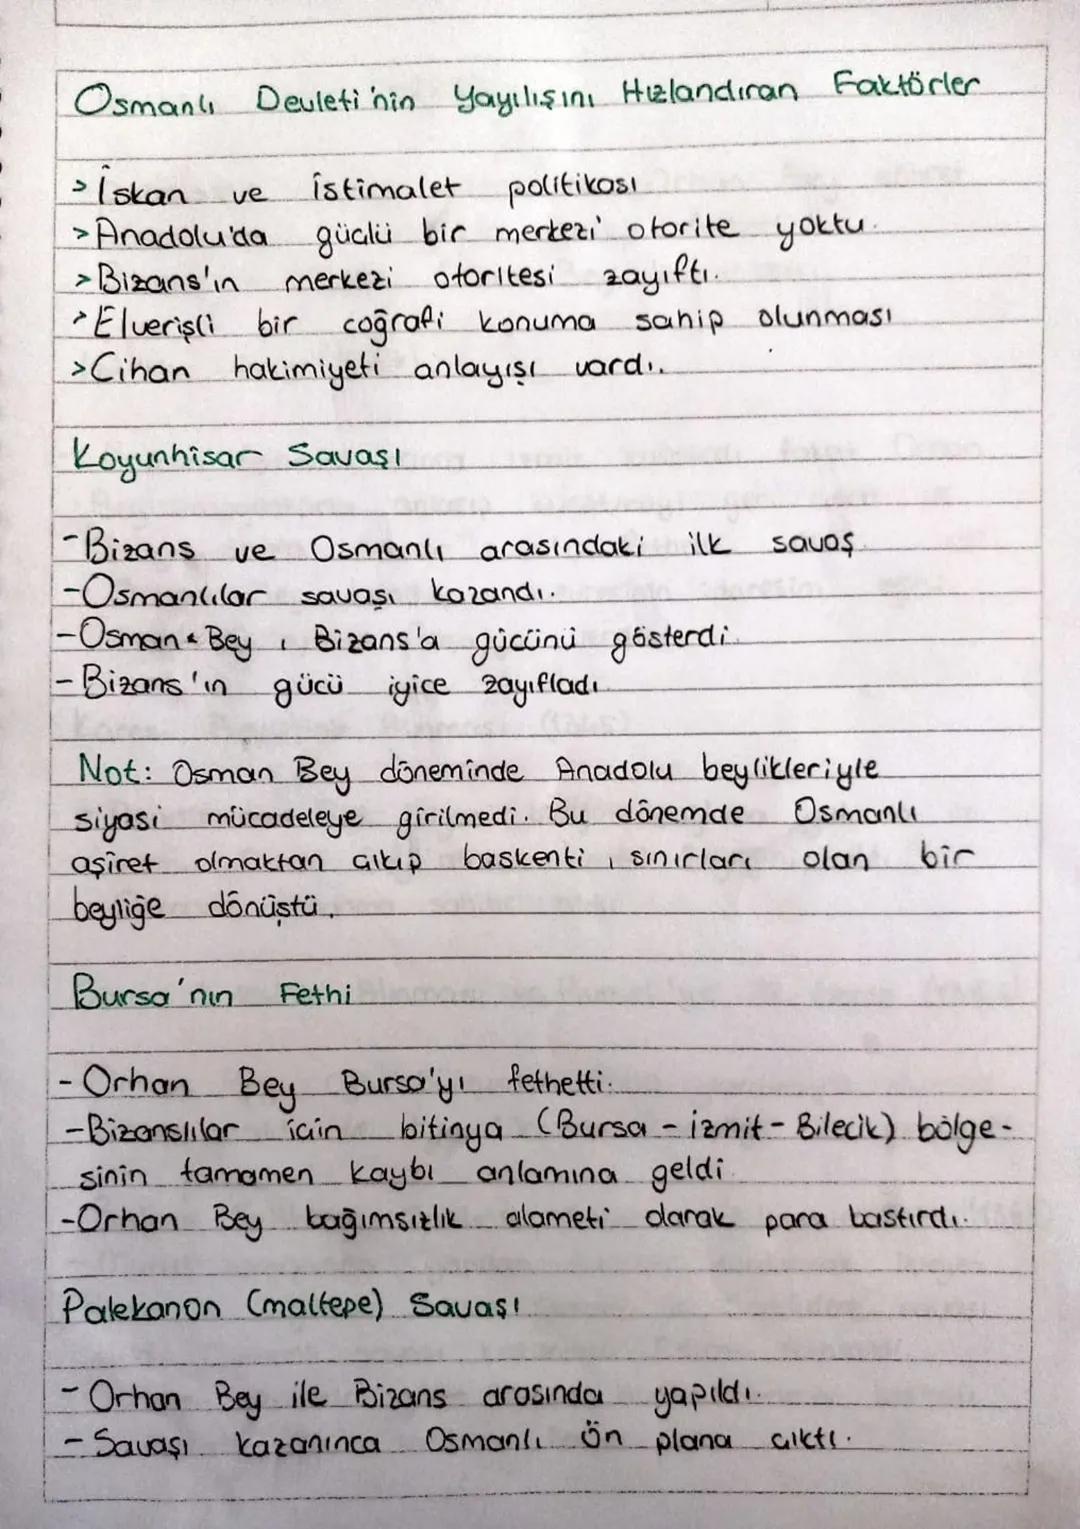 Osmanlı Devleti'nin Yayılışını Hızlandıran Faktörler
> İskan ve istimalet politikası
> Anadolu'da güçlü bir merkezi otorite yoktu.
> Bizans'ın merkezi otoritesi zayıftı.
> Elverişli bir coğrafi konuma sahip olunması
> Cihan hakimiyeti anlayışı vardı.
Koyunhisar Savaşı
- Bizans ve Osmanlı arasındaki ilk savaş
- Osmanlılar savaşı kazandı.
- Osman Bey, Bizans'a gücünü gösterdi.
- Bizans'ın gücü iyice zayıfladı.
Not: Osman Bey döneminde Anadolu beylikleriyle
siyasi mücadeleye girilmedi. Bu dönemde Osmanlı
aşiret olmaktan çıkıp başkenti, sınırları olan bir
beyliğe dönüştü.
Bursa'nın Fethi
- Orhan Bey Bursa'yı fethetti.
- Bizanslılar için bitinya (Bursa - izmit - Bilecik) bölge-
sinin tamamen kaybı anlamına geldi.
- Orhan Bey bağımsızlık alameti olarak para bastırdı.
Palekanon (maltepe) Savaşı
- Orhan Bey ile Bizans arasında yapıldı.
- Savaşı kazanınca Osmanlı ön plana çıktı.